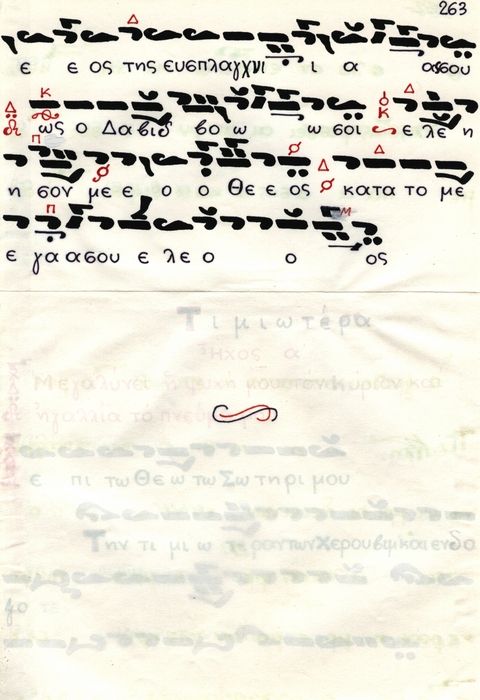 263
ε ε ος της ευσπλαγχνι ι α ασου
ως ο Δαβιδ βο ω ωσοι ε λε η
η σον με ε ο Θε ε ος κατα το με
ε γα ασου ε λε ο ο ος
Τιμιωτέρα
Ἦχος α
Μεγαλύνει η ψυχή μου τον Κύριον και
ε πι τω Θε ω τω Σω τη ρι μου
Την τι μι ω τε ραν των Χερουβιμ και ενδο
ξο τε